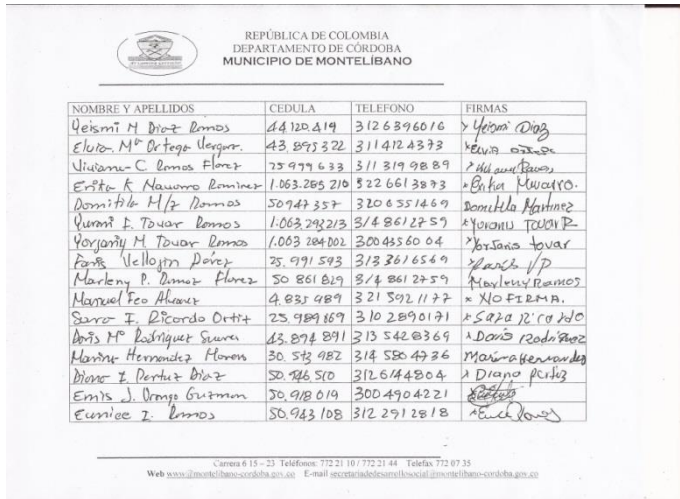 REPÚBLICA DE COLOMBIA
DEPARTAMENTO DE CÓRDOBA
MUNICIPIO DE MONTELÍBANO
NOMBRE Y APELLIDOS CEDULA TELEFONO FIRMAS
Yeismi M Diaz Ramos 44120.419 3126396016 Yeismi Diaz
Elvia Mª Ortega Vergar. 43.895322 3114124373 Elvia
Viviana C. Ramos Florez 25.999633 3113199889
Erika K Navarro Raminez 1.063.285210 5226613873 Erika Navarro.
Domitila M/z Ramos 50947357 3206551469 Domitila Martinez
Yurani I. Tovar Ramos 1.063.293213 3148612759 Yoranis Tovar R
Yorjaniy M. Tovar Ramos 1.063 284002 3004356004 Yorjanis tovar
Faris Vellojin Pérez 25.991593 3133616569
Marleny P. Ramos Florez 50 861829 3148612759 Marleny Ramos
Manuel Feo Alvarez 4.835989 3215921177 x NO FIRMA.
Sara I. Ricardo Ortiz 25.989169 3102890171 Sara Ricardo
Doris Mª Rodriguez Suarez 43.894891 3135428369 Doris Rodriguez
Marina Hernandez Moreno 30.573982 3145804736 Marina Hernandez
Diana I. Pertuz Diaz 50.946.510 3126144804 Diana Pertuz
Emis J. Orango Guzman 50.918019 3004904221
Eunice I. Ramos 50.943108 3122912818
Carrera 6 15 – 23 Teléfonos: 772 21 10 / 772 21 44 Telefax 772 07 35
Web www.@montelibano-cordoba.gov.co E-mail secretariadedesarrollosocial@montelibano-cordoba.gov.co